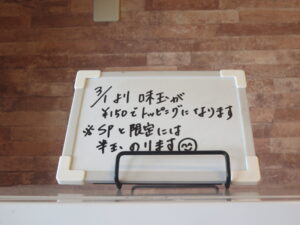 3/1より 味玉が
¥150でトッピングになります
※SPと限定には
半玉のります